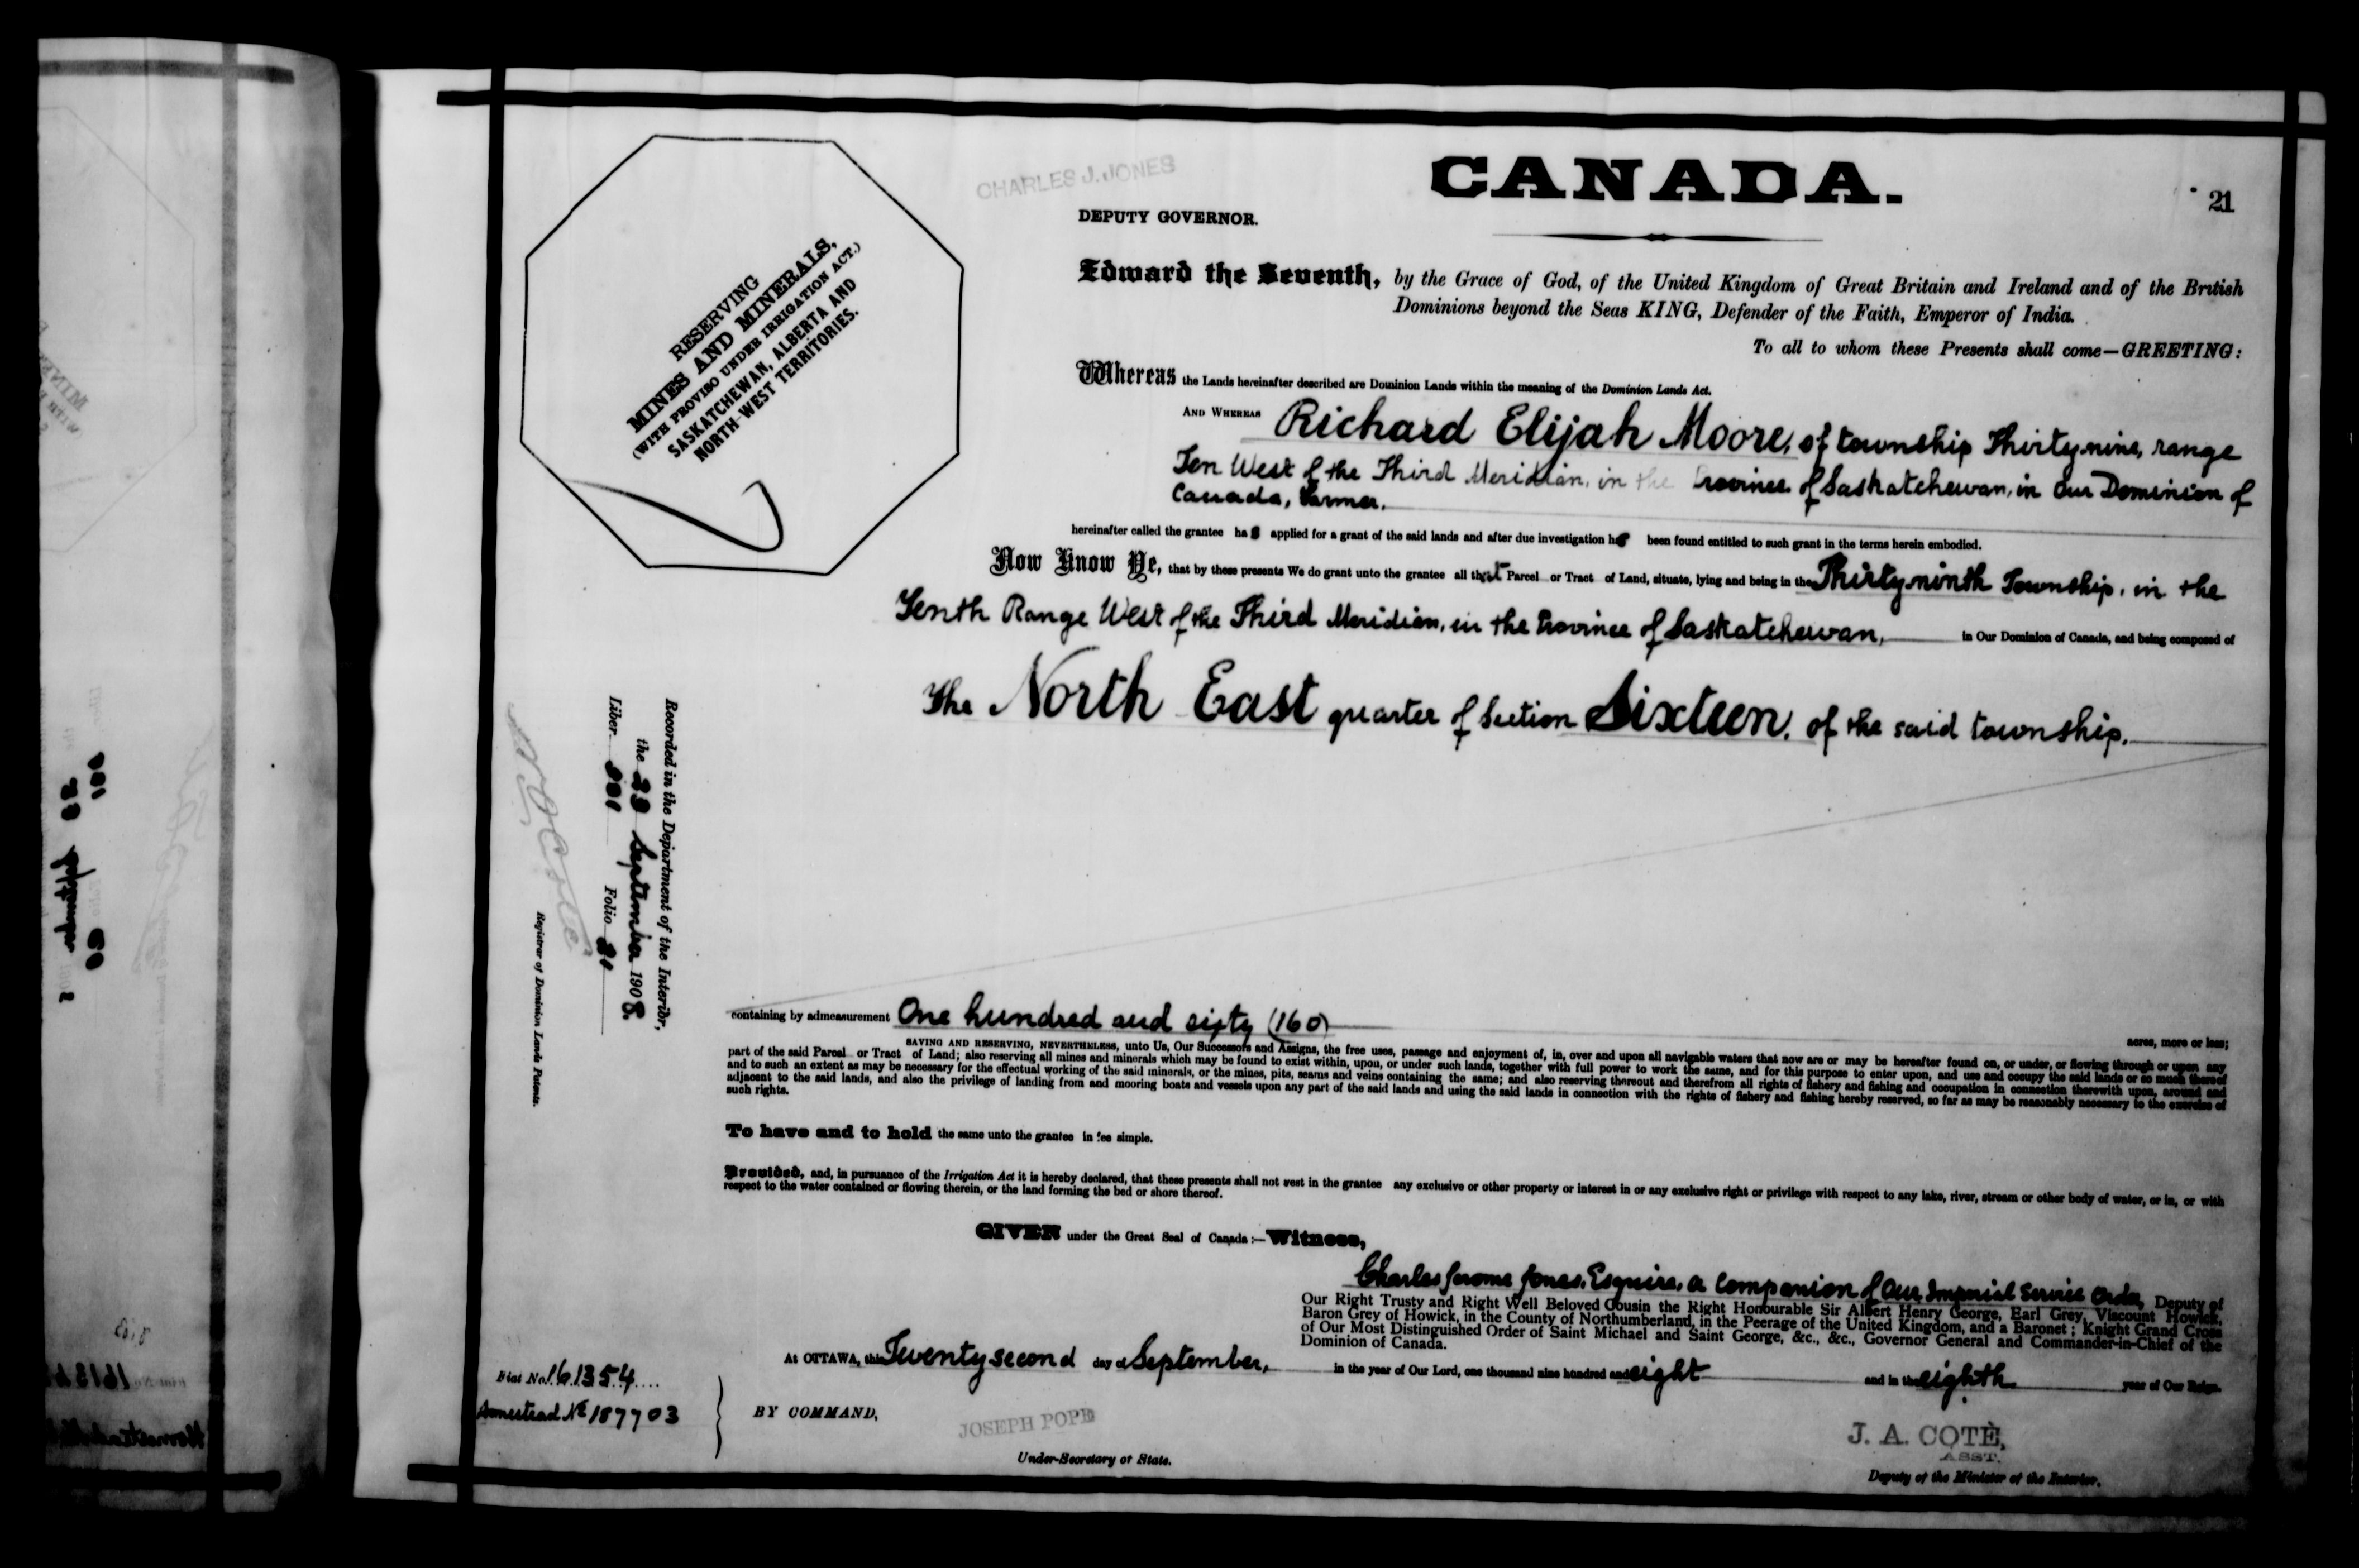 CHARLES J. JONES
CANADA.
21
DEPUTY GOVERNOR.
RESERVING
MINES AND MINERALS,
(WITH PROVISO UNDER IRRIGATION ACT.)
SASKATCHEWAN, ALBERTA AND
NORTH-WEST TERRITORIES.
Edward the Seventh, by the Grace of God, of the United Kingdom of Great Britain and Ireland and of the British
Dominions beyond the Seas KING, Defender of the Faith, Emperor of India.
To all to whom these Presents shall come—GREETING:
Whereas the Lands hereinafter described are Dominion Lands within the meaning of the Dominion Lands Act.
AND WHEREAS Richard Elijah Moore, of township Thirty nine, range
Ten West of the Third Meridian, in the Province of Saskatchewan, in Our Dominion of
Canada, Farmer,
hereinafter called the grantee has applied for a grant of the said lands and after due investigation has been found entitled to such grant in the terms herein embodied.
Now Know Ye, that by these presents We do grant unto the grantee all that Parcel or Tract of Land, situate, lying and being in the Thirty ninth Township, in the
Tenth Range West of the Third Meridian, in the Province of Saskatchewan, in Our Dominion of Canada, and being composed of
The North East quarter of Section Sixteen, of the said township,
Recorded in the Department of the Interior,
the 29 September 1908.
Liber 301 Folio 21
Registrar of Dominion Lands Patents.
containing by admeasurement One hundred and sixty (160) acres, more or less;
SAVING AND RESERVING, NEVERTHELESS, unto Us, Our Successors and Assigns, the free uses, passage and enjoyment of, in, over and upon all navigable waters that now are or may be hereafter found on, or under, or flowing through or upon any
part of the said Parcel or Tract of Land; also reserving all mines and minerals which may be found to exist within, upon, or under such lands, together with full power to work the same, and for this purpose to enter upon, and use and occupy the said lands or so much thereof
and to such an extent as may be necessary for the effectual working of the said minerals, or the mines, pits, seams and veins containing the same; and also reserving thereout and therefrom all rights of fishery and fishing and occupation in connection therewith upon, around and
adjacent to the said lands, and also the privilege of landing from and mooring boats and vessels upon any part of the said lands and using the said lands in connection with the rights of fishery and fishing hereby reserved, so far as may be reasonably necessary to the exercise of
such rights.
To have and to hold the same unto the grantee in fee simple.
Provided, and, in pursuance of the Irrigation Act it is hereby declared, that these presents shall not vest in the grantee any exclusive or other property or interest in or any exclusive right or privilege with respect to any lake, river, stream or other body of water, or in, or with
respect to the water contained or flowing therein, or the land forming the bed or shore thereof.
GIVEN under the Great Seal of Canada:—Witness,
Charles Jerome Jones, Esquire, a Companion of Our Imperial Service Order, Deputy of
Our Right Trusty and Right Well Beloved Cousin the Right Honourable Sir Albert Henry George, Earl Grey, Viscount Howick,
Baron Grey of Howick, in the County of Northumberland, in the Peerage of the United Kingdom, and a Baronet; Knight Grand Cross
of Our Most Distinguished Order of Saint Michael and Saint George, &c., &c., Governor General and Commander-in-Chief of the
Dominion of Canada.
At OTTAWA, this Twenty second day of September, in the year of Our Lord, one thousand nine hundred and eight and in the eighth year of Our Reign.
Fiat No. 161354
Homestead No 187703
BY COMMAND,
JOSEPH POPE
Under-Secretary of State.
J. A. COTÈ,
ASST.
Deputy of the Minister of the Interior.